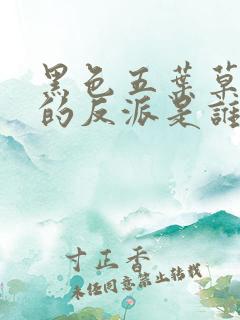 黑色五葉草
的反派是誰
寸正香
未经同意禁止转载